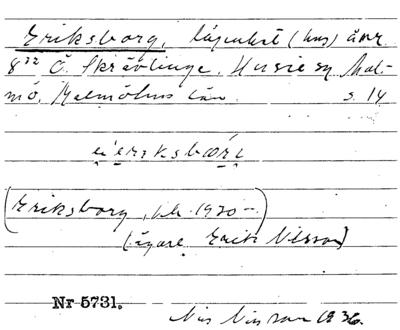 Eriksborg, lägenhet (hus) å nr
8³² Ö. Skrävlinge, Husie sn, Mal-
mö, Malmöhus län. s. 14
(Eriksborg, 1920–
(ägare Erik Nilsson)
Nr 5731.
Nils Nilsson 1936.